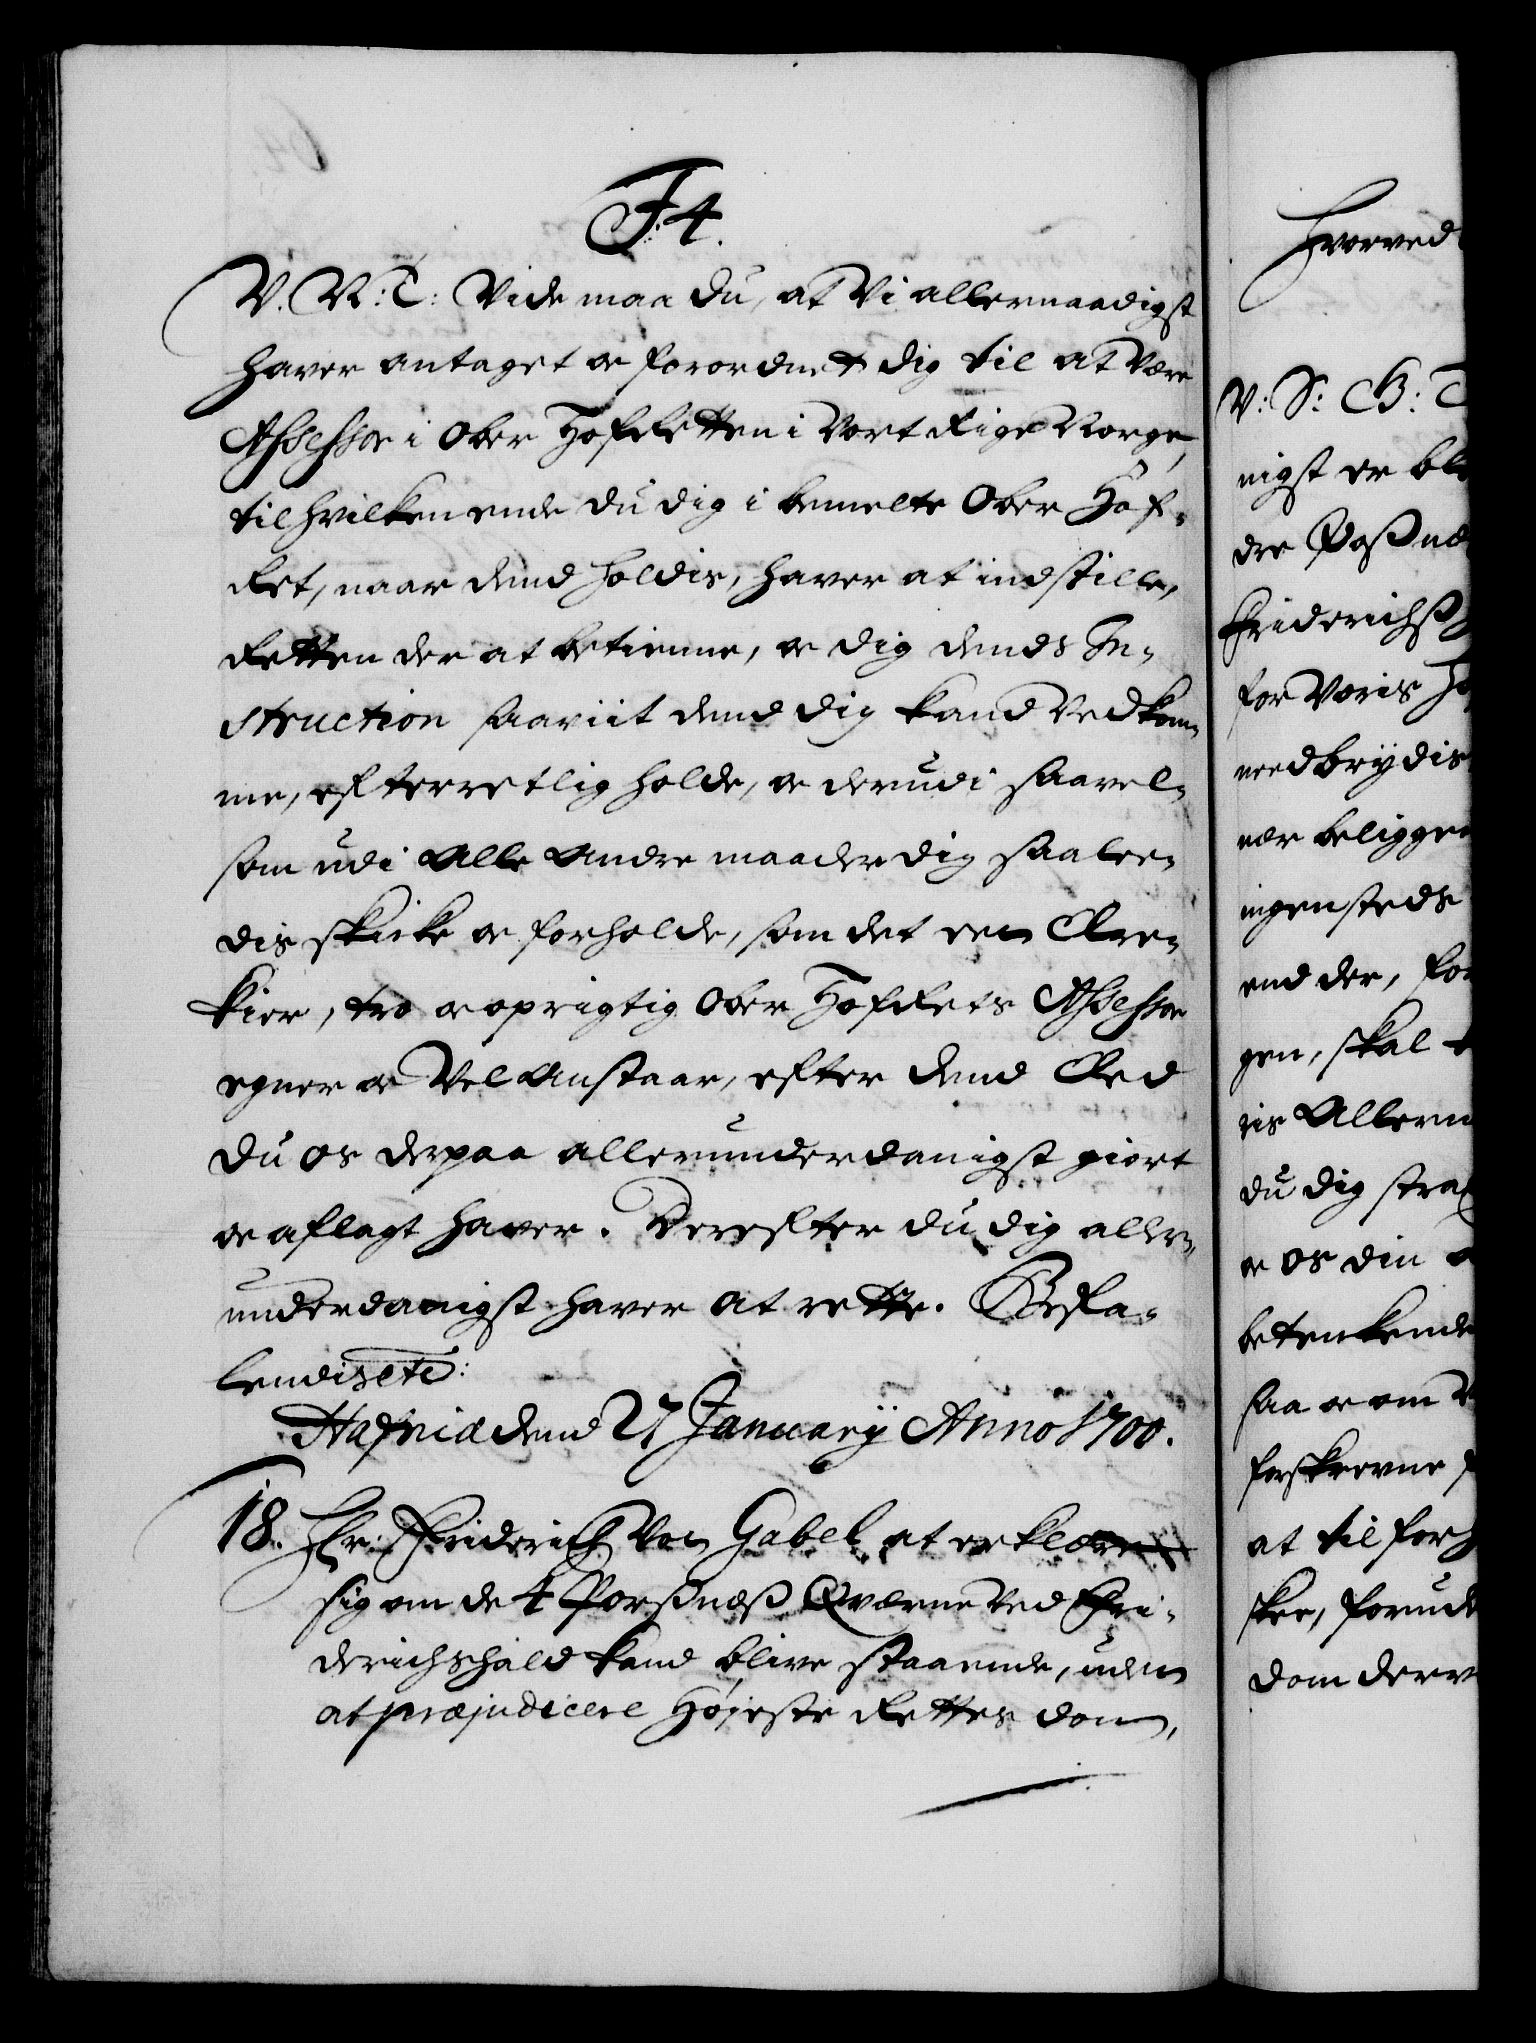 F4.
V. N: T: Vide maa du, at Vi allernaadigst
hafver antaget oc forordnet dig til at være
Assessor i Ober Hofretten i Vort Rige Norge,
til hvilken ende du dig i bemelte Ober Hof-
Ret, naar dend holdis, hafver at indstille,
Retten der at betienne, oc dig dends In-
struction saaviit dend dig kand Vedkom-
me, efterretlig holde, oc derudi saavel-
som udi Alle Andre maader dig saalee-
dis skicke oc forholde, som det een Ære-
kier, tro oc oprigtig Ober HofRets Assessor
egner oc Vel Anstaar, efter dend Eed
du os derpaa allerunderdanigst giort
oc aflagt hafver. Derefter du dig aller-
underdanigst hafver at rette. Befa-
lendis etc:
Hafniæ dend 27 Januarij Anno 1700.
18. Hr: Friderich Von Gabel at erklære
sig om de 4 Porsnæs Qværne Ved Fri-
derichshald kand blive staaende, uden
at præjudicere Højeste Rettes dom,
Hvorved
V: S: G: T
nigst er ble
dre
Friderichs
for Voris
needbrydis
nær beliggen
ingensteds
end der, for
gen, skal
ris Allern
du dig strax
oc os din
betenkende
saa oc om
forskrevne
at til forh
skee, forud
dom derv